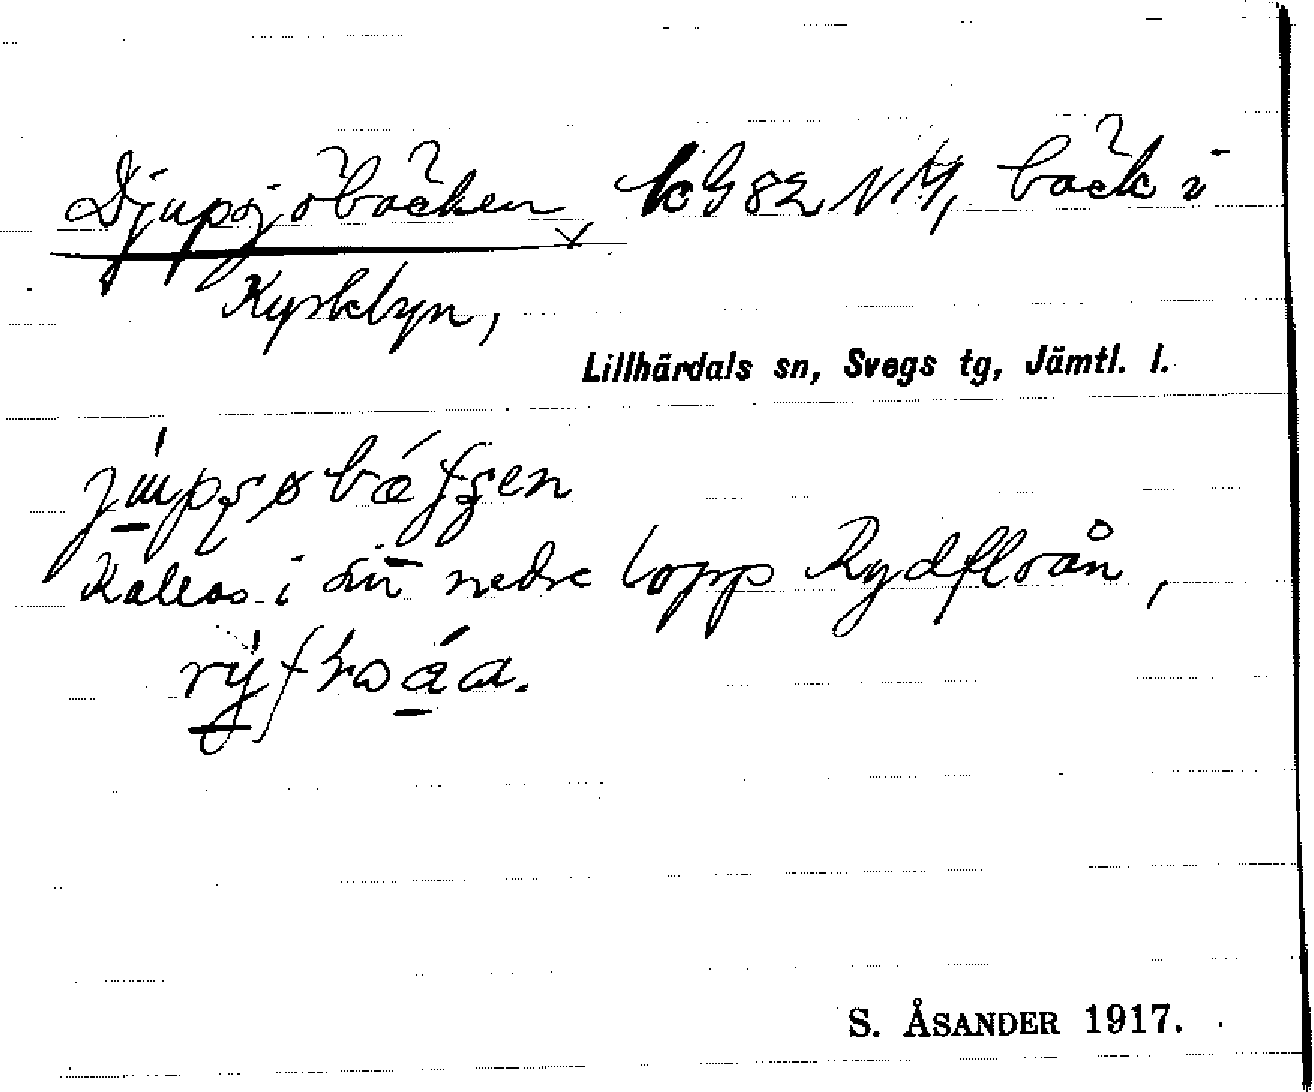 Djupsjöbäcken, kG82NM, bäck i
Kyrkbyn,
Lillhärdals sn, Svegs tg, Jämtl. l.
Kallas i sin nedre lopp Rydfloån,
S. ÅSANDER 1917.